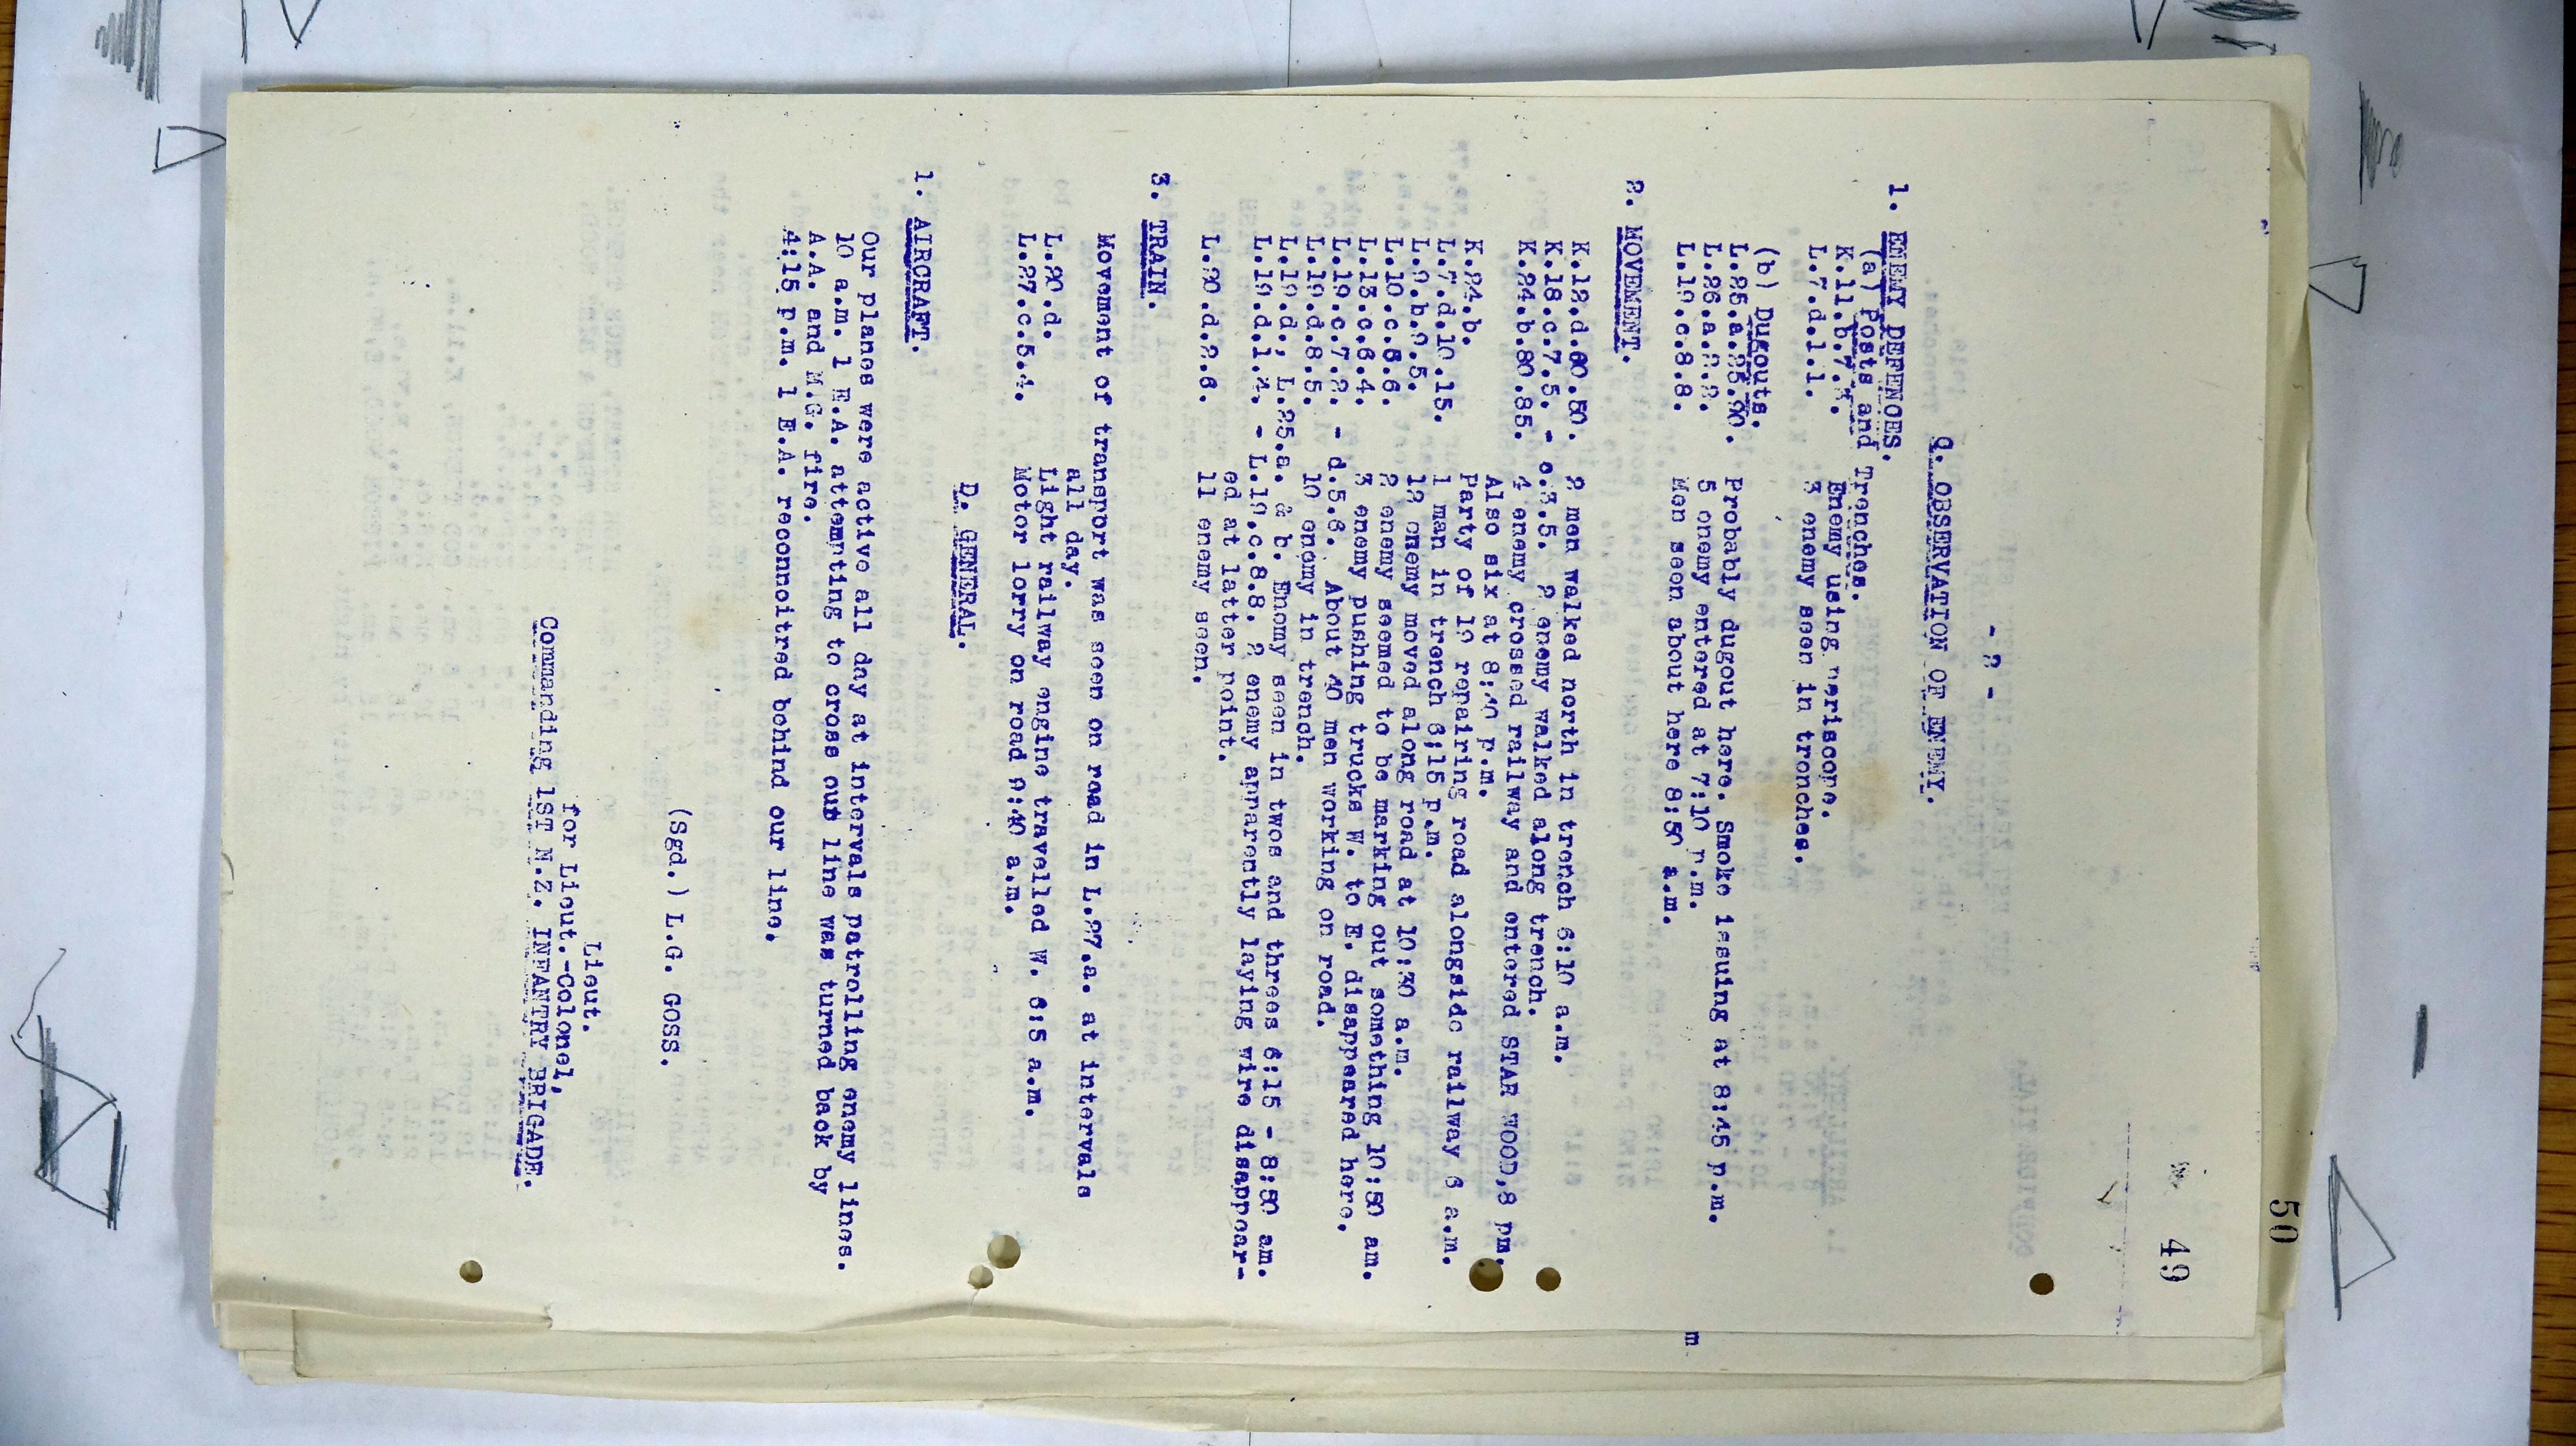 50
49
- 2 -
C. OBSERVATION OF ENEMY.
1. ENEMY DEFENCES.
(a) Posts and Trenches.
K.11.b.7. Enemy using periscope.
L.7.d.1.1. 3 enemy seen in trenches.
(b) Dugouts.
L.25.a.25.90. Probably dugout here. Smoke issuing at 8:45 p.m.
L.26.a.2.2. 5 enemy entered at 7:10 p.m.
L.19.c.8.8. Men seen about here 8:50 a.m.
2. MOVEMENT.
K.12.d.60.50. 2 men walked north in trench 6:10 a.m.
K.18.c.7.5. - c.3.5. 2 enemy walked along trench.
K.24.b.80.85. 4 enemy crossed railway and entered STAR WOOD,8 pm.
Also six at 8:40 p.m.
K.24.b. Party of 19 repairing road alongside railway 6 a.m.
L.7.d.10.15. 1 man in trench 6;15 p.m.
L.9.b.9.5. 12 enemy moved along road at 10:30 a.m.
L.10.c.5.6. 2 enemy seemed to be marking out something 10:50 am.
L.13.c.6.4. 3 enemy pushing trucks W. to E. disappeared here.
L.19.c.7.2. - d.5.8. About 40 men working on road.
L.19.d.8.5. 10 enemy in trench.
L.19.d.; L.25.a. & b. Enemy seen in twos and threes 6:15 - 8:50 am.
L.19.d.1.4. - L.19.c.8.8. 2 enemy apparently laying wire disappear-
ed at latter point.
L.20.d.2.6. 11 enemy seen.
3. TRAIN.
Movement of transport was seen on road in L.27.a. at intervals
all day.
L.20.d. Light railway engine travelled W. 6:5 a.m.
L.27.c.5.4. Motor lorry on road 9:40 a.m.
D. GENERAL.
1. AIRCRAFT.
Our planes were active all day at intervals patrolling enemy lines.
10 a.m. 1 E.A. attempting to cross out line was turned back by
A.A. and M.G. fire.
4:15 p.m. 1 E.A. reconnoitred behind our line.
(Sgd.) L.G. GOSS.
Lieut.
for Lieut.-Colonel,
Commanding 1ST N.Z. INFANTRY BRIGADE.
m